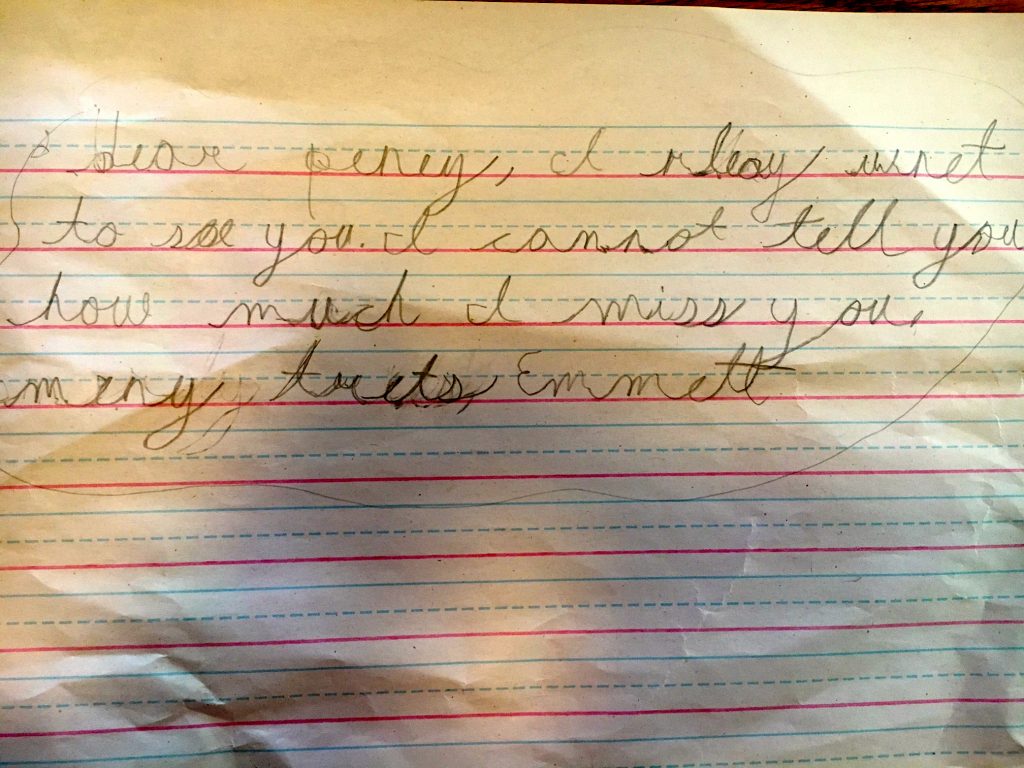 Dear peney, I rleay wnet
to see you. I cannot tell you
how much I miss you.
meny treets, Emmett